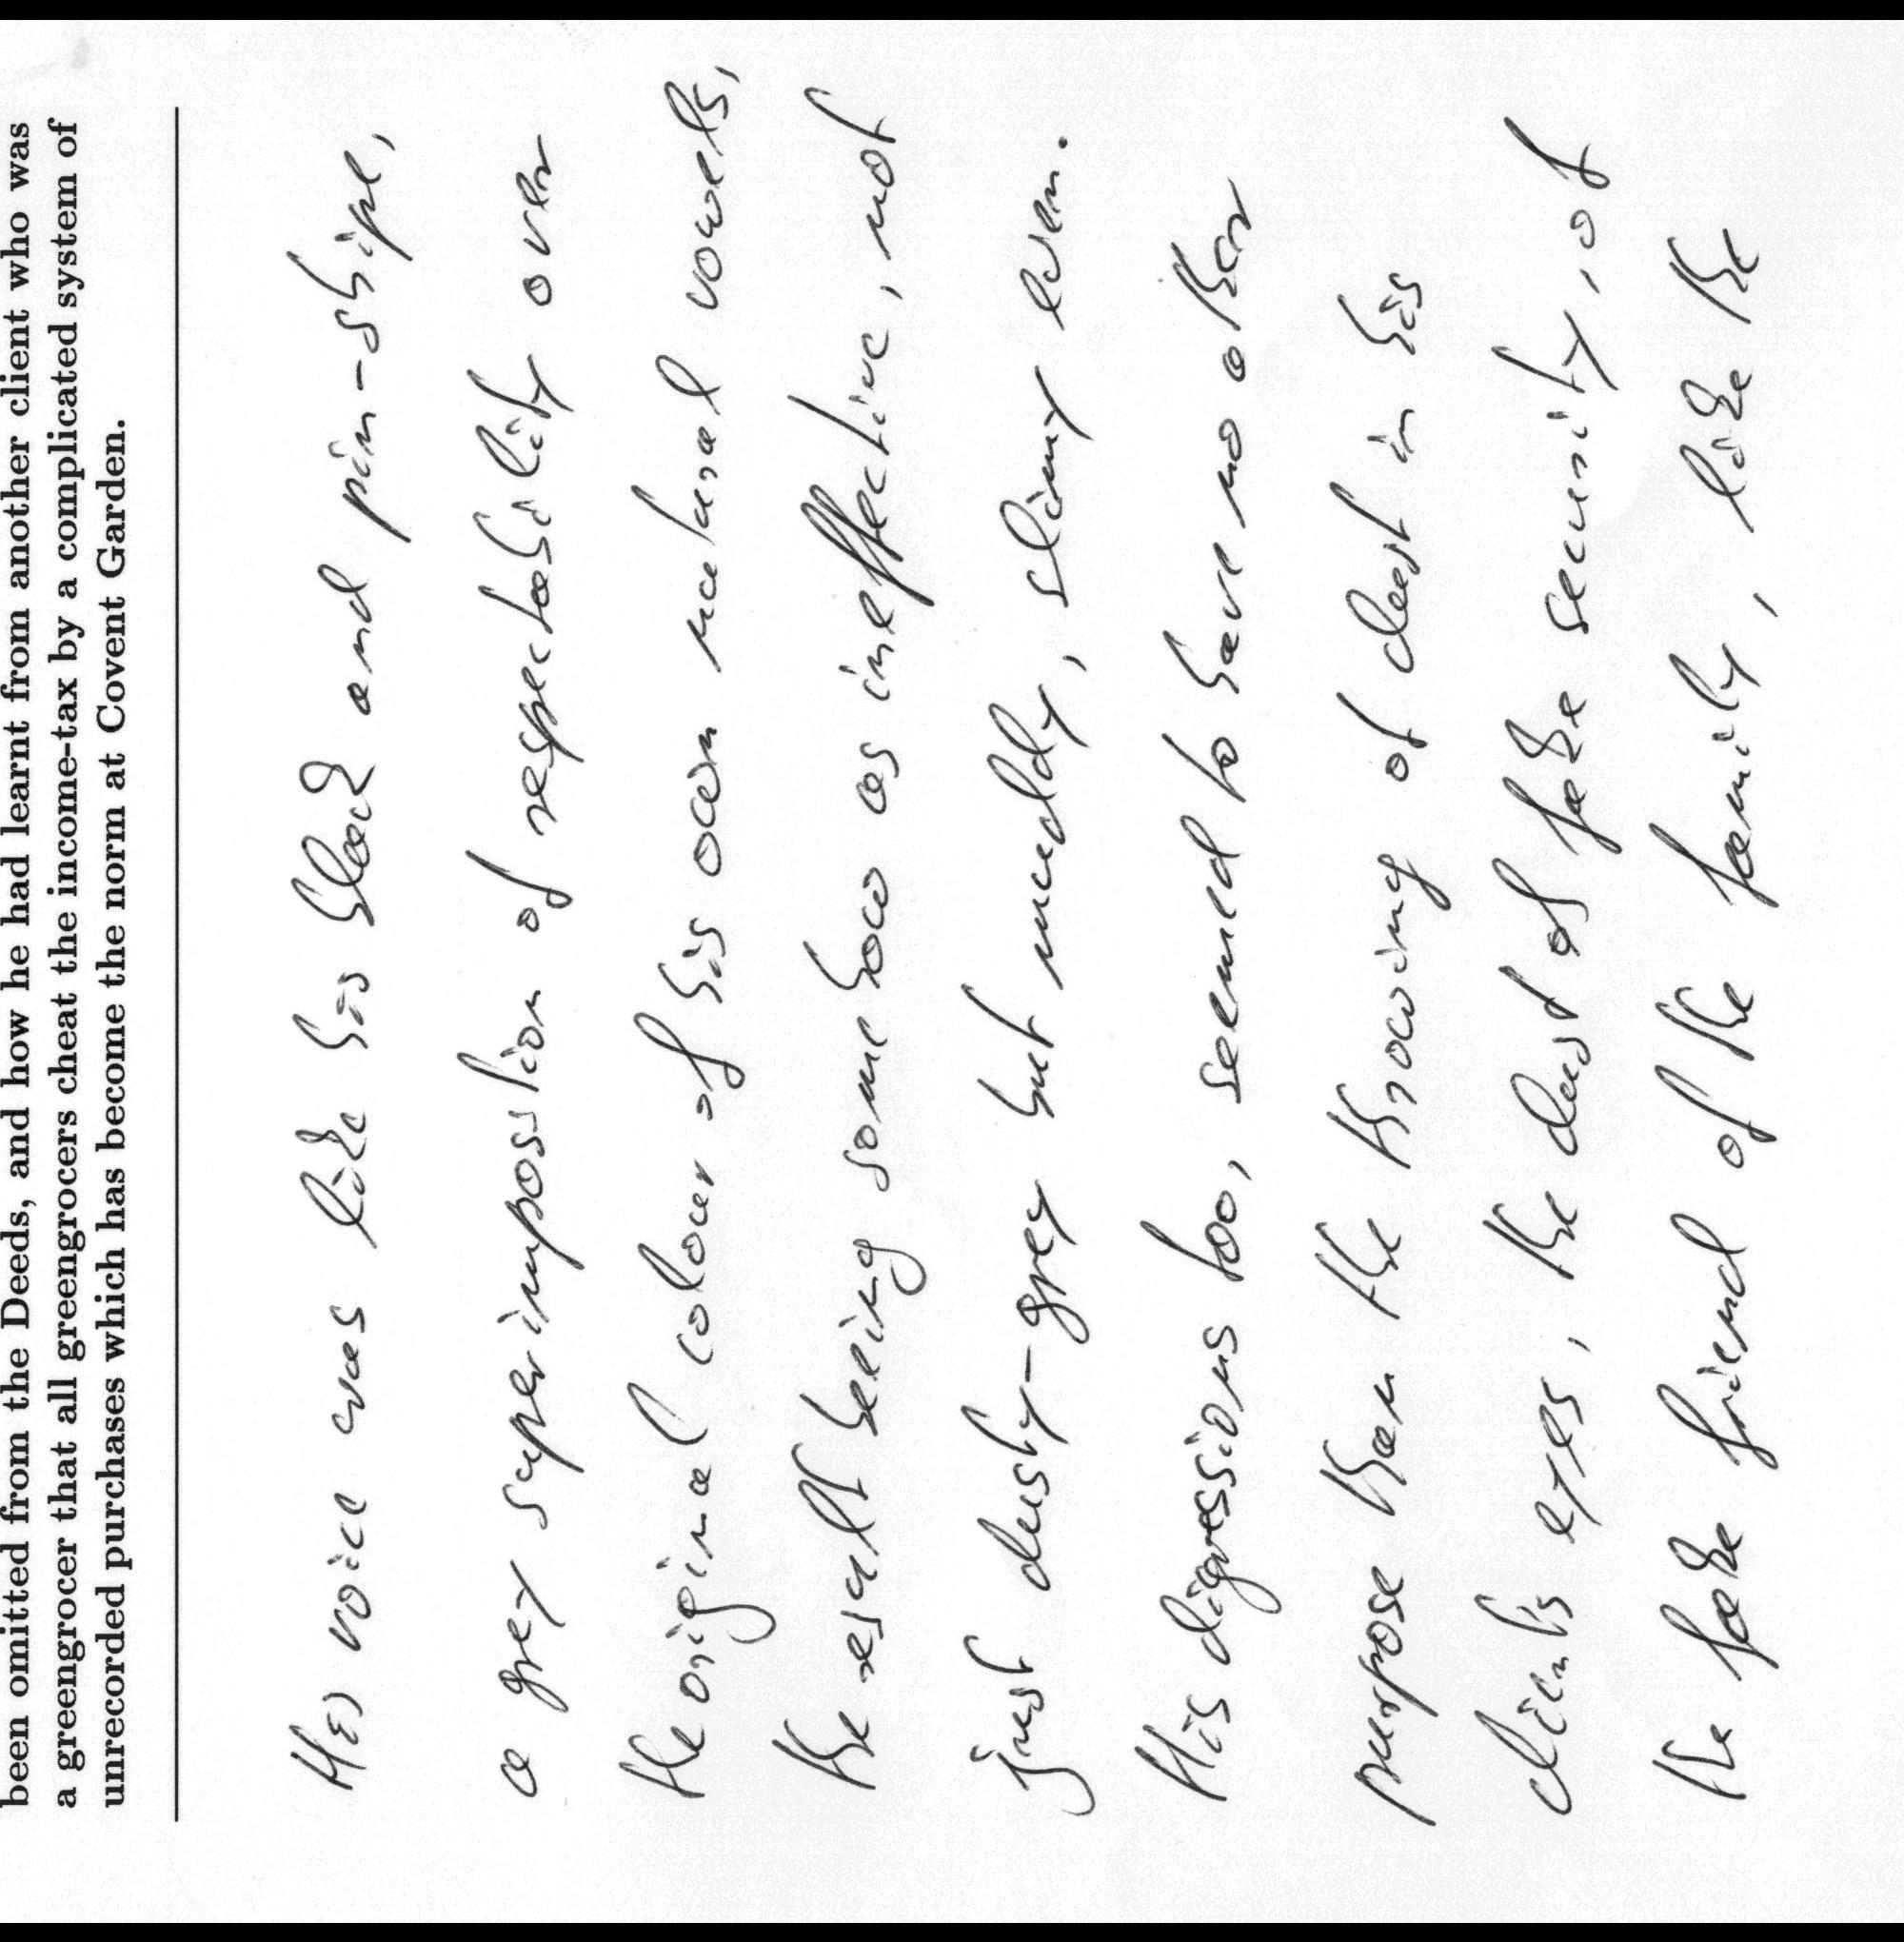 been omitted from the Deeds, and how he had learnt from another client who was
a greengrocer that all greengrocers cheat the income-tax by a complicated system of
unrecorded purchases which has become the norm at Covent Garden.
His voice was like his black and pin-stripe,
a grey superimposition of respectability over
the original colour of his own natural vowels,
the result being some how as ineffective, not
just dusty-grey but muddy, slimy even.
His digressions too, seemed to have no other
purpose than the throwing of dust in his
clients eyes, the dust of fake security, of
the fake friend of the family, like the